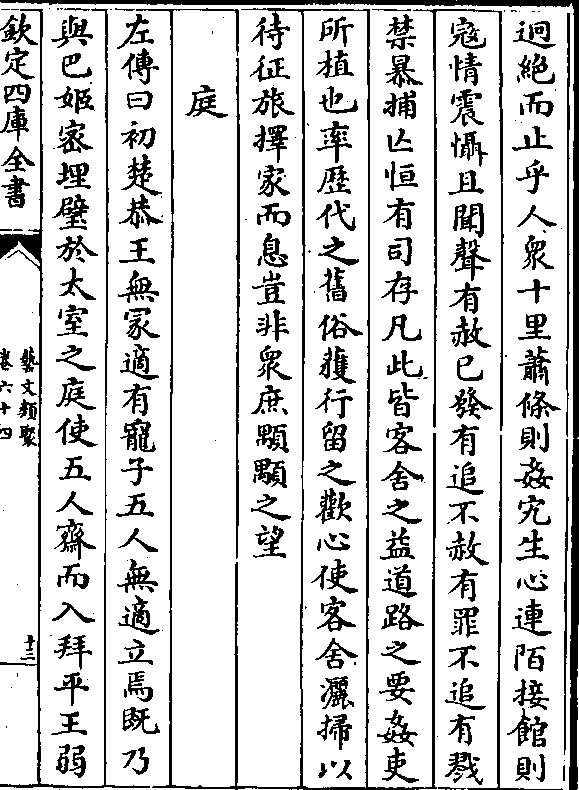 迥絶而止乎人衆十里蕭條則姦宄生心連陌接館則
寇情震懾且聞聲有赦已發有追不赦有罪不追有戮
禁暴捕亡恒有司存凡此皆客舍之益道路之要姦吏
所植也率歴代之舊俗獲行留之歡心使客舍灑掃以
待征旅擇家而息豈非衆庶顒顒之望
庭
左傳曰初楚恭王無冡適有寵子五人無適立焉既乃
與巴姬宻埋璧於太室之庭使五人齋而入拜平王弱
欽定四庫全書
藝文類聚
卷六十四
十三